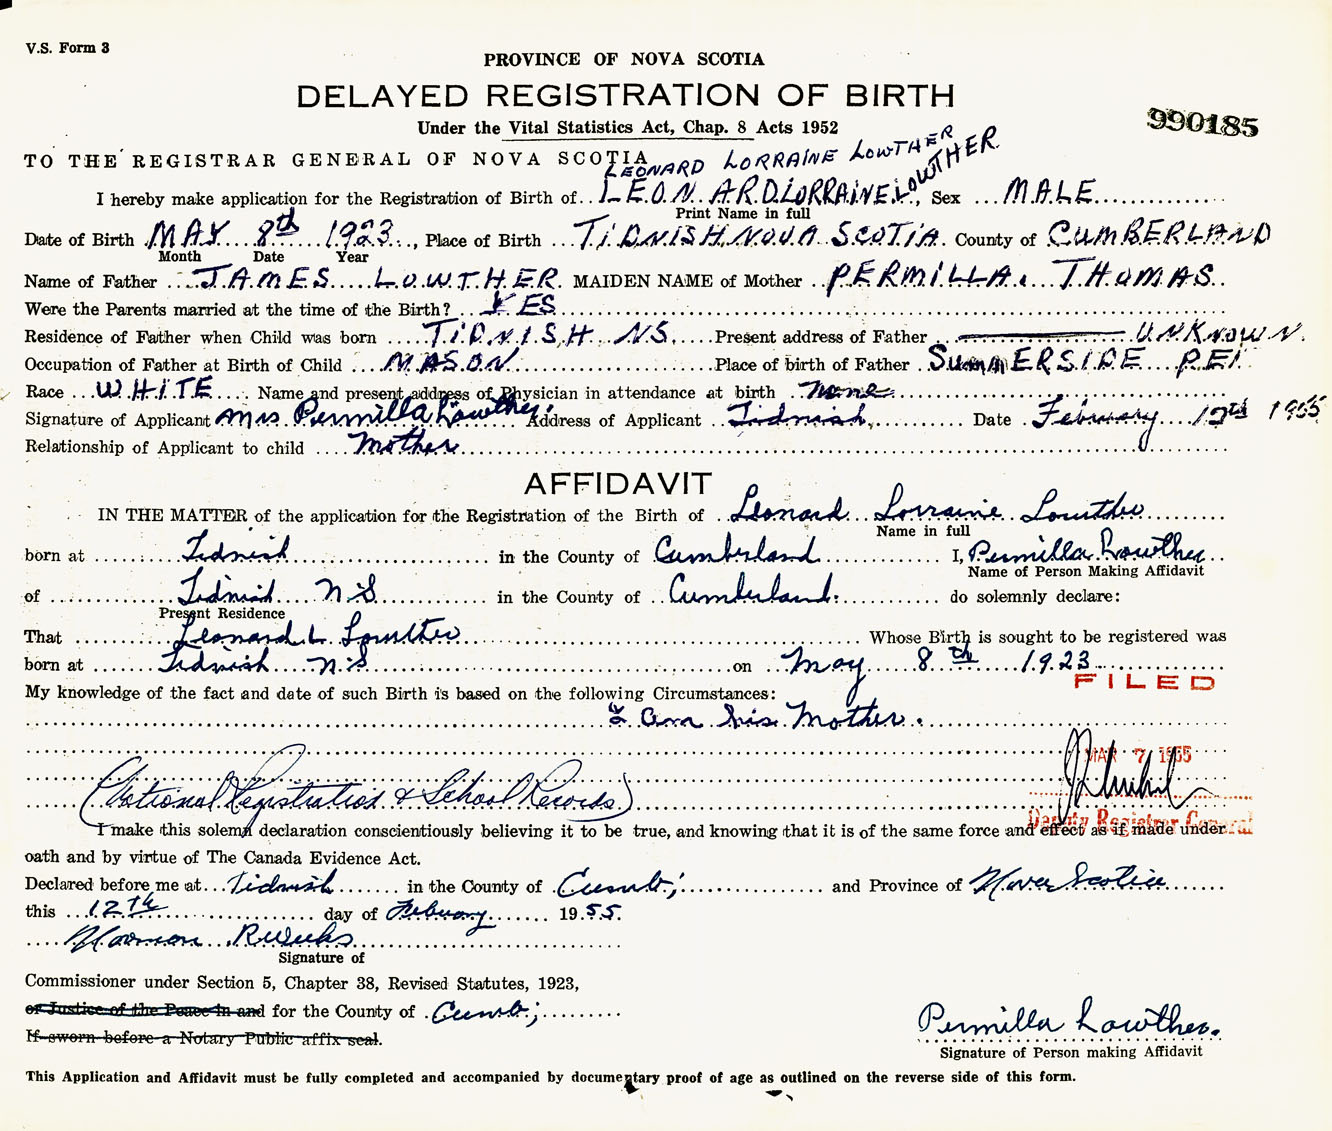 V.S. Form 3
PROVINCE OF NOVA SCOTIA
DELAYED REGISTRATION OF BIRTH
Under the Vital Statistics Act, Chap. 8 Acts 1952
990185
TO THE REGISTRAR GENERAL OF NOVA SCOTIA
LEONARD LORRAINE LOWTHER
I hereby make application for the Registration of Birth of LEONARD LORRAINE LOWTHER, Sex MALE
Print Name in full
Date of Birth MAY 8th 1923, Place of Birth TIDNISH NOVA SCOTIA County of CUMBERLAND
Month Date Year
Name of Father JAMES LOWTHER. MAIDEN NAME of Mother PERMILLA THOMAS
Were the Parents married at the time of the Birth? YES
Residence of Father when Child was born TIDNISH NS. Present address of Father UNKNOWN.
Occupation of Father at Birth of Child MASON Place of birth of Father SUMMERSIDE PEI
Race WHITE Name and present address of Physician in attendance at birth none
Signature of Applicant Mrs Permilla Lowther. Address of Applicant Tidnish, Date February 12th 1955
Relationship of Applicant to child Mother
AFFIDAVIT
IN THE MATTER of the application for the Registration of the Birth of Leonard Lorraine Lowther
Name in full
born at Tidnish in the County of Cumberland I, Permilla Lowther
Name of Person Making Affidavit
of Tidnish N.S in the County of Cumberland. do solemnly declare:
Present Residence
That Leonard L Lowther Whose Birth is sought to be registered was
born at Tidnish N.S on May 8th 1923
FILED
My knowledge of the fact and date of such Birth is based on the following Circumstances:
I am his Mother.
MAR 7 1955
(National Registration & School Records)
Deputy Registrar General
I make this solemn declaration conscientiously believing it to be true, and knowing that it is of the same force and effect as if made under
oath and by virtue of The Canada Evidence Act.
Declared before me at Tidnish in the County of Cumb; and Province of Nova Scotia
this 12th day of Febuary 1955.
Signature of
Commissioner under Section 5, Chapter 38, Revised Statutes, 1923,
or Justice of the Peace in and for the County of Cumb;
If sworn before a Notary Public affix seal.
Permilla Lowther.
Signature of Person making Affidavit
This Application and Affidavit must be fully completed and accompanied by documentary proof of age as outlined on the reverse side of this form.